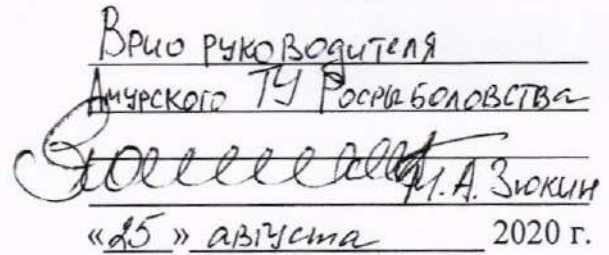 Врио руководителя
Амурского ТУ Росрыболовства
И.А. Зюкин
«25» августа 2020 г.